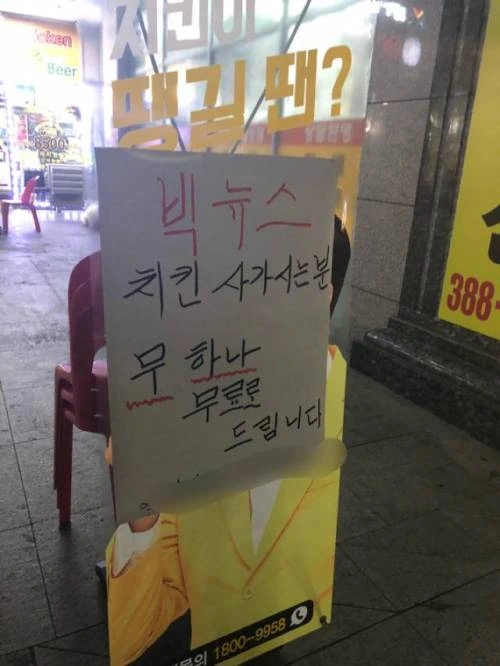 치킨이
땡길 땐?
cken
&
Beer
8500
빅뉴스
치킨 사가시는분
무 하나
무료로
드립니다
388-
문의 1800-9958